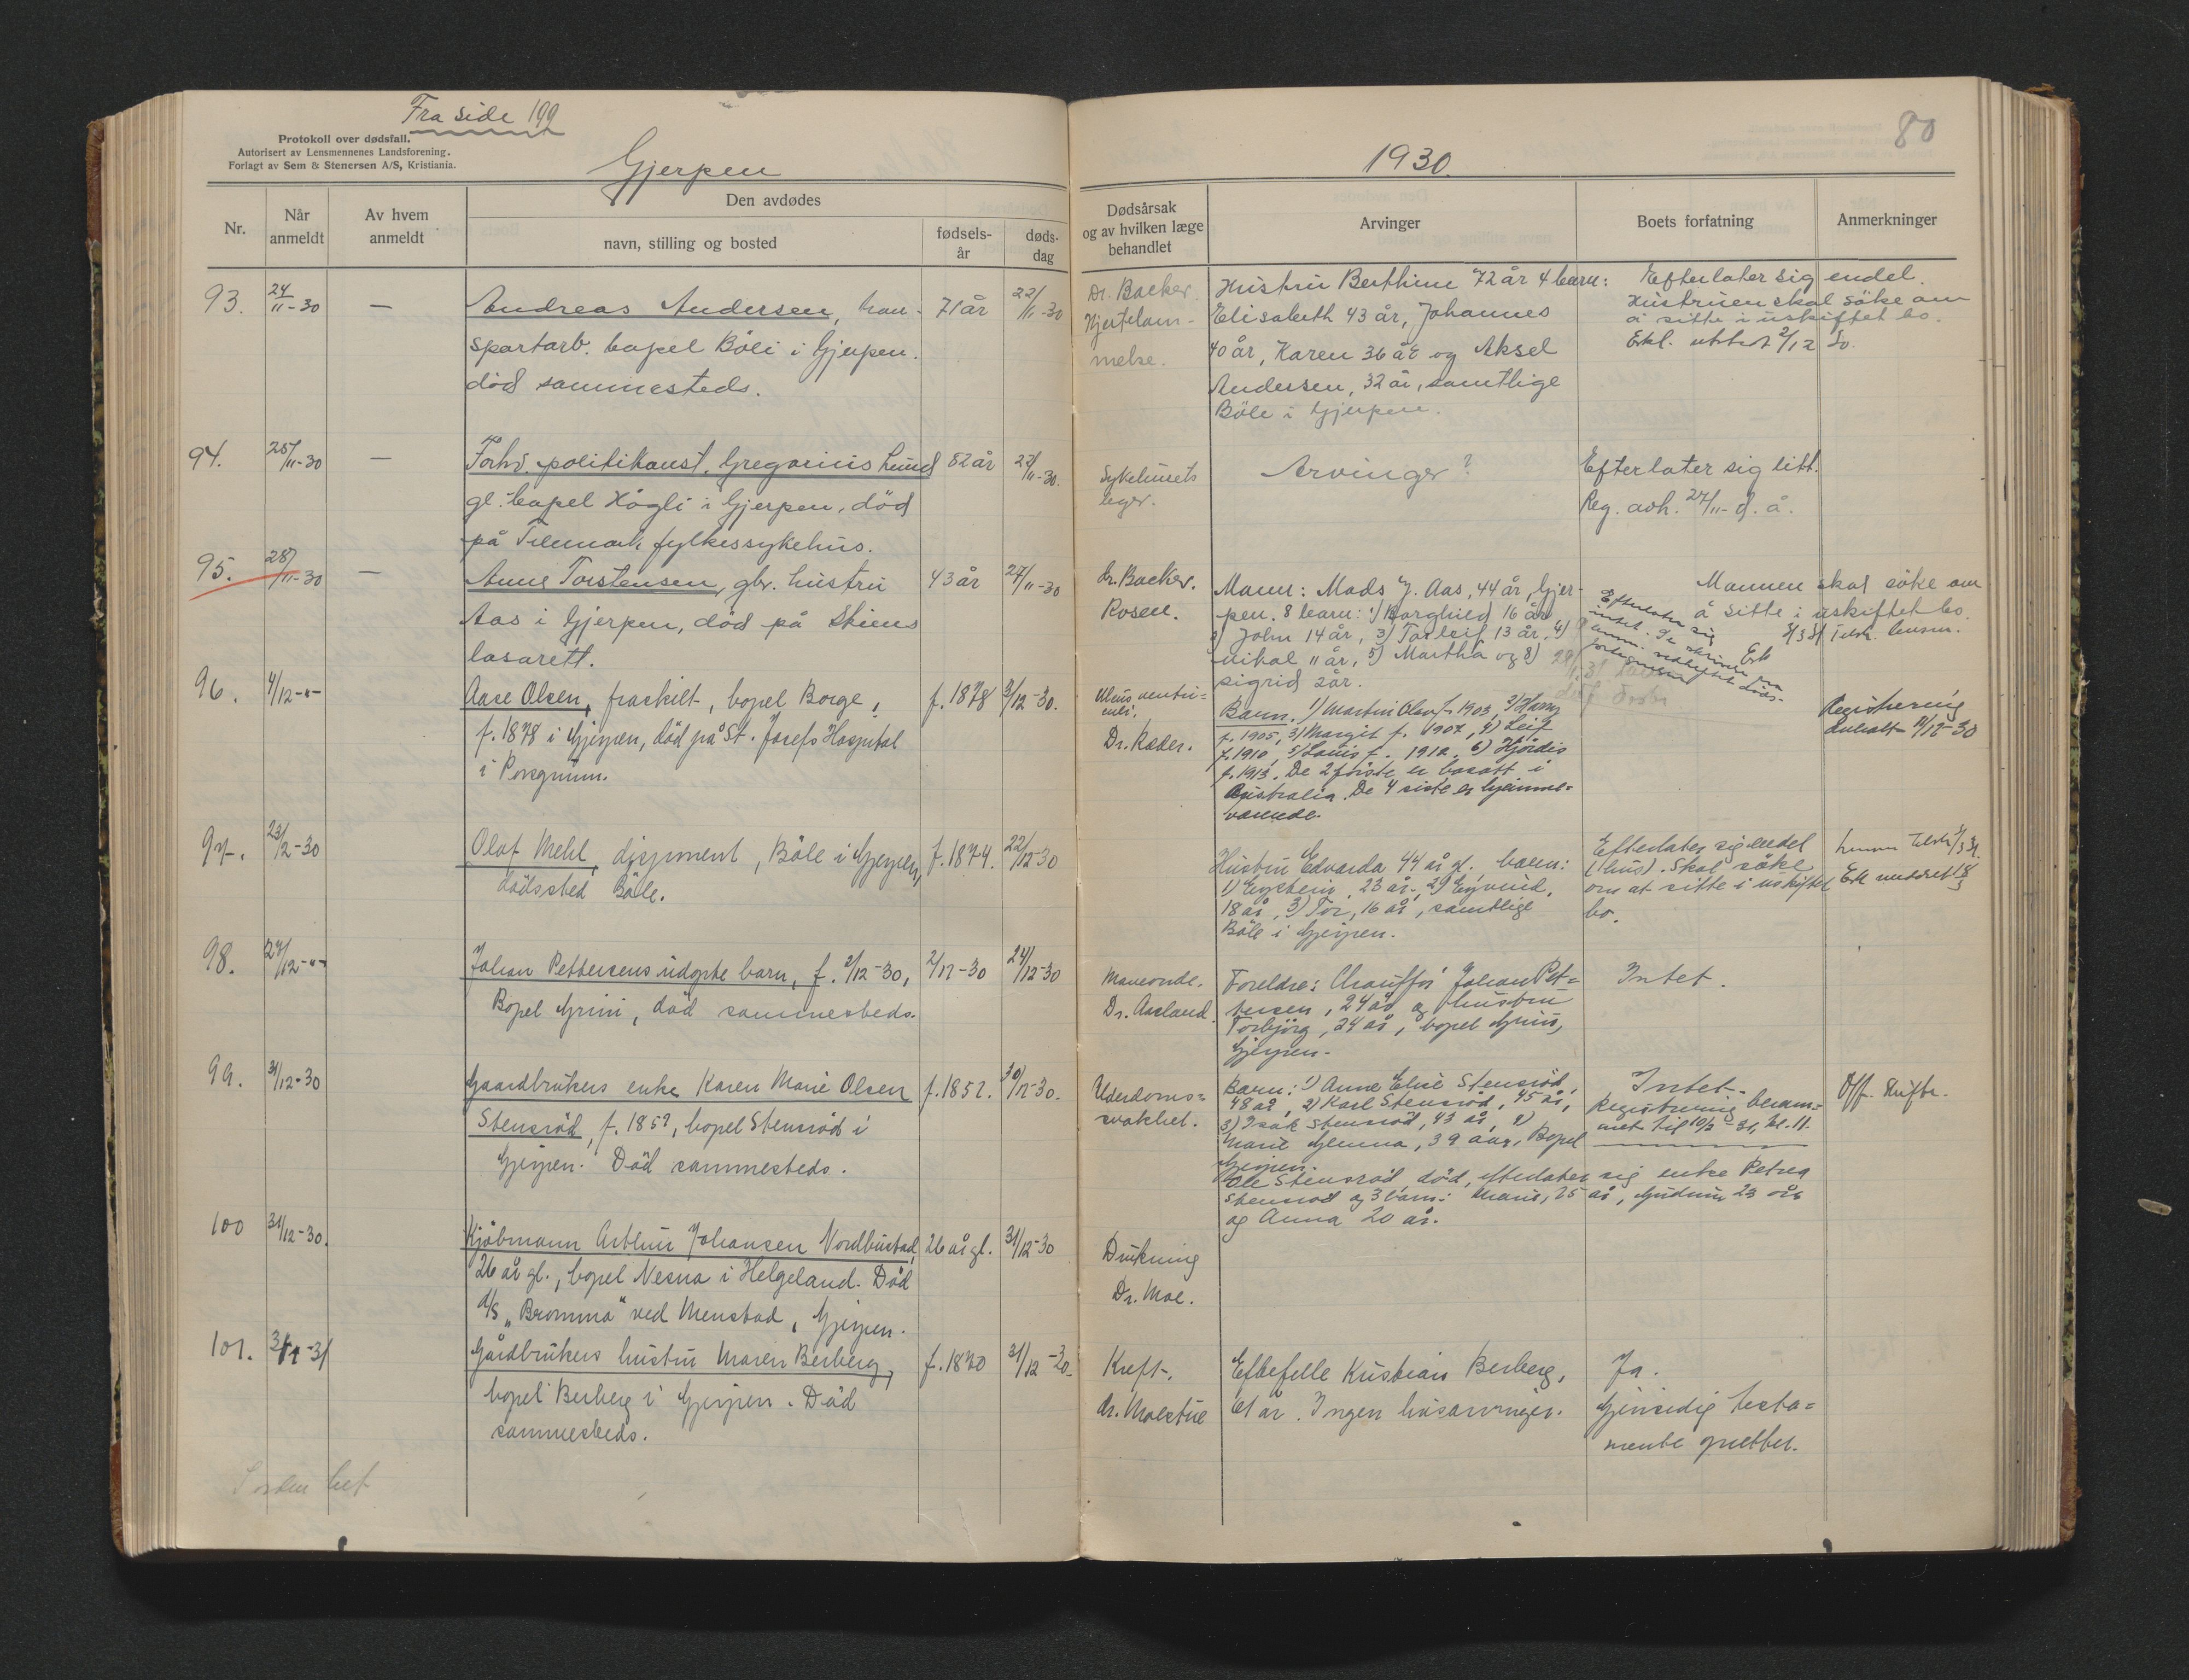 Fra side 199
Protokoll over dødsfall.
Autorisert av Lensmennenes Landsforening.
Forlagt av Sem & Stenersen A/S, Kristiania.
Gjerpen
1930.
80
Nr.
Når anmeldt
Av hvem anmeldt
Den avdødes
navn, stilling og bosted
fødsels-år
døds-dag
Dødsårsak og av hvilken læge behandlet
Arvinger
Boets forfatning
Anmerkninger
93. 24/11-30 — Andreas Andersen, tran- 71 år 22/11-30
sportarb. bopel Böle i Gjerpen.
död sammesteds.
Dr. Backer.
Hjertelam-
melse.
Hustru Berthine 72 år 4 barn:
Elisabeth 43 år, Johannes
40 år, Karen 36 år og Aksel
Andersen, 32 år, samtlige
Böle i Gjerpen.
Efterlater sig endel.
Hustruen skal söke om
å sitte i uskiftet bo.
94. 25/11-30 — Forhv. politikonst. Gregorius Lund 82 år
gl. bopel Högli i Gjerpen, död
på Telemark fylkessykehus.
Sykehusets
leger.
Arvinger?
Efterlater sig litt.
Reg. avh. 27/11- d. å.
95. 28/11-30 — Anne Torstensen, gbr. hustru 43 år 27/11-30
Aas i Gjerpen, död på Skiens
lasarett.
Dr. Backer.
Rosen.
Mann: Mads J. Aas, 44 år, Gjer-
pen. 8 barn: 1) Borghild 16 år
2) John 14 år, 3) Torleif 13 år, 4)
11 år, 5) Martha og 8)
Sigrid 2 år.
Mannen skal söke om
å sitte i uskiftet bo.
Efterlater sig
intet.
96. 4/12-"- Aase Olsen, fraskilt, bopel Borge, f. 1878 3/12-30.
f. 1878 i Gjerpen, död på St. Josefs Hospital
i Porsgrunn.
Ulcus ventri-
culi.
Dr. Ræder.
Barn. 1) Martin Olav f. 1903, 2) Harry
f. 1905, 3) Margit f. 1907, 4) Leif
f. 1910, 5) Louis f. 1912, 6) Hjördis
f. 1913. De 2 første er bosatt i
Australia. De 4 siste er hjemme-
værende.
Registrering
97. 23/12-30 Olaf Mehl, disponent, Böle i Gjerpen, f. 1874. 22/12-30
dödssted Böle.
Hustru Edvarda 44 år gl., barn:
1) Eystein, 23 år, 2) Eyvind,
18 år, 3) Tor, 16 år, samtlige
Böle i Gjerpen.
Efterlater sig endel
(1 hus). Skal söke
om at sitte i uskiftet
bo.
98. 27/12-"- Johan Pettersens udöpte barn, f. 2/12-30, 2/12-30 24/12-30
Bopel Grini, död sammesteds.
Maveonde.
Dr. Aasland.
Foreldre: Chauffør Johan Pet=
tersen, 24 år og hustru
Torbjörg, 24 år, bopel Grini,
Gjerpen.
Intet.
99. 31/12-30 Gaardbrukers enke Karen Marie Olsen f. 1852. 30/12-30.
Stensröd, f. 1852, bopel Stensröd i
Gjerpen. Död sammesteds.
Alderdoms=
svakhet.
Barn: 1) Anne Elise Stensröd,
48 år, 2) Karl Stensröd, 45 år,
3) Isak Stensröd, 43 år,
Marie 39 aar. Bopel
Gjerpen.
Ole Stensröd, död, efterlater sig enke Petrea
Stensröd og 3 barn: 25 år, Gudrun 23 år
og Anna 20 år.
Intet.
Registrering beram=
met til 10/2-31, kl. 11.
Off. Skifte.
100 31/12-30. Kjöbmann Arthur Johansen Nordbustad, 26 år gl. 31/12-30
26 år gl., bopel Nesna i Helgeland. Död
d/s „Bromma" ved Menstad, Gjerpen.
Drukning
Dr. Moe.
101. Gårdbrukers hustru Maren Berberg, f. 1870 31/12-30.
bopel Berberg i Gjerpen. Död
sammesteds.
Kreft.
Dr. Molstue
Eftefølle Kristian Berberg,
61 år. Ingen livsarvinger.
Ja.
Gjensidig testa=
mente oprettet.